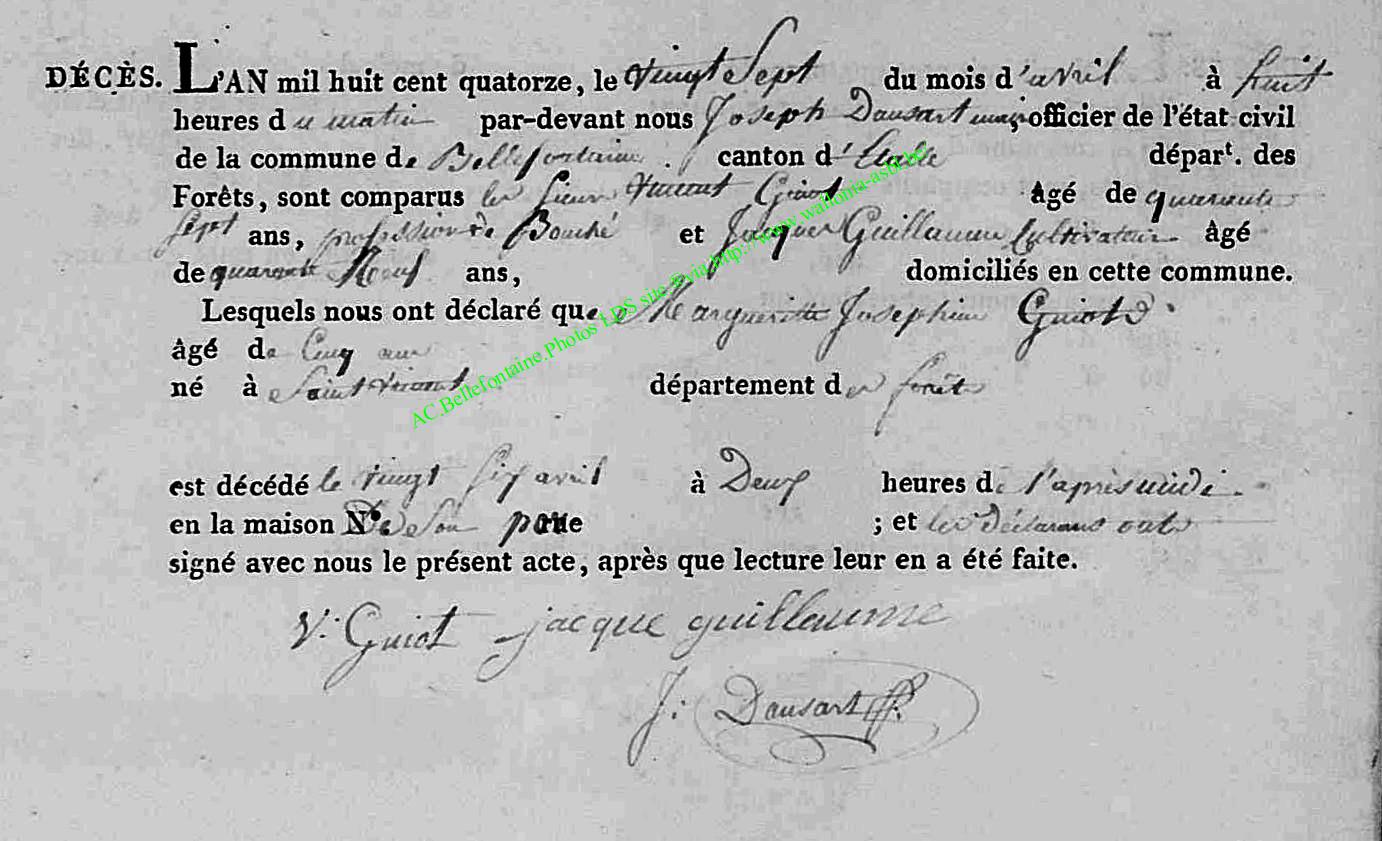 DÉCÈS. L'AN mil huit cent quatorze, le vingt Sept du mois d'avril à huit
heures du matin par-devant nous Joseph Dausart officier de l'état civil
de la commune de Bellefontaine canton d'Etalle départ. des
Forêts, sont comparus les Sieurs Vincent Guiot âgé de quarante
sept ans, profession de et Jacque Guillaume Cultivateur âgé
de quarante Neuf ans, domiciliés en cette commune.
Lesquels nous ont déclaré que Marguerite Josephine Guiot
âgé de Cinq ans
né à Saint Vincent département des forêts
est décédé le vingt Six avril à Deux heures de l'après midi
en la maison de Son ; et les déclarans ont
signé avec nous le présent acte, après que lecture leur en a été faite.
V. Guiot jacque guillaume
J: Dausart
AC.Bellefontaine.Photos LDS site @via http://www.wallonia-asbl.be